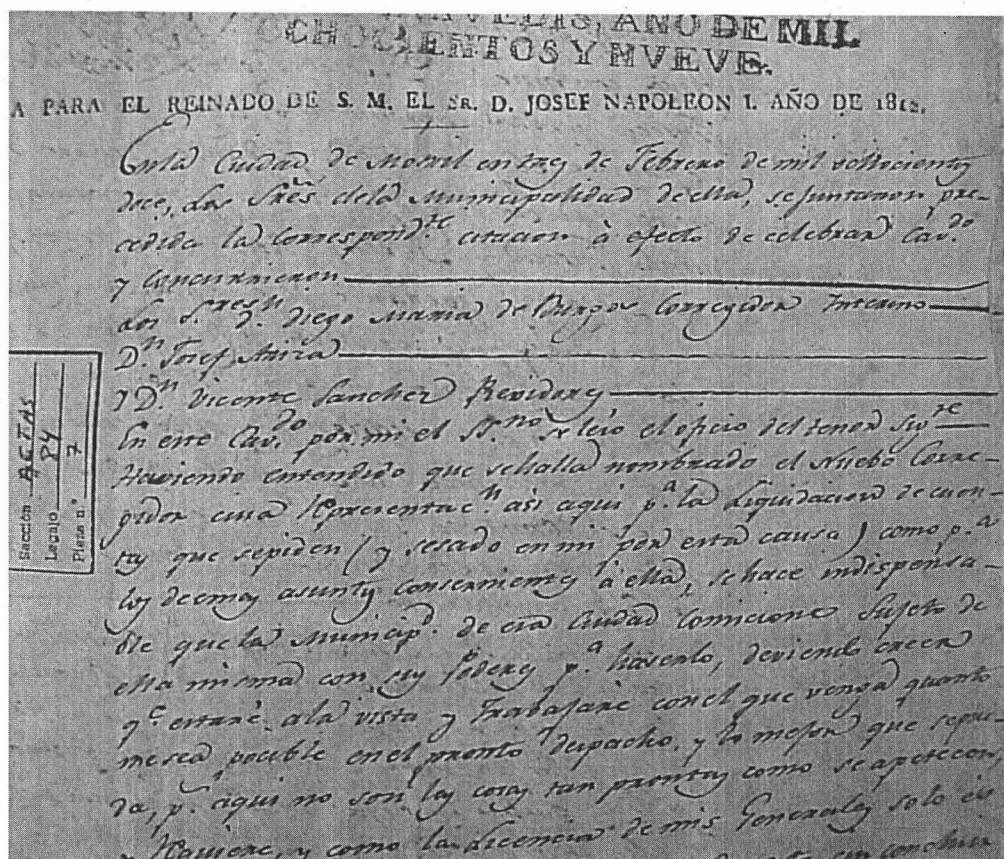 AÑO DE MIL
CHOCIENTOS Y NVEVE.
A PARA EL REINADO DE S. M. EL SR. D. JOSEF NAPOLEON I. AÑO DE 1812.
En la Ciudad de Motril en tres de Febrero de mil ochocientos
doce, Los Sres. dela Municipalidad de ella, se juntaron pre-
cedida la correspondte. citacion à efecto de celebrar Cavdo.
y concurrieron
Los Sres. Dn. Diego Maria de Burgos Corregidor Interino
Dn. Josef
I Dn. Vicente Sanchez Rexidores
En este Cavdo. por mi el SSno. se leio el oficio del tenor Sigte.
Haviendo entendido que sehalla nombrado el Nuebo Corre-
gidor cuia Representacn. asi aqui pa. la Liquidacion de cuen-
tas que sepiden (y sesado en mi por esta causa) como pa.
los demas asuntos consernientes à ella, se hace indispensa-
ble que la Municipd. de esa Ciudad Comicione Sujeto de
ella misma con sus Poderes pa. haserlo, deviendo creer
qe. estaré ala vista y Trabajaré con el que venga quanto
mesea pocible en el pronto despacho, y lo mejor que sepue-
da, ps. aqui no son las cosas tan prontas como se apetecen,
y Requiere, y como la Licencia de mis Generales solo es
Sección ACTAS
Legajo 84
Pieza n.º 7